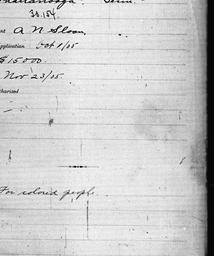 Chattanooga Tenn.
30,154
A N Sloan,
pplication Oct 9/05
$15000.
Nov. 23/05.
uthorized
For colored people.